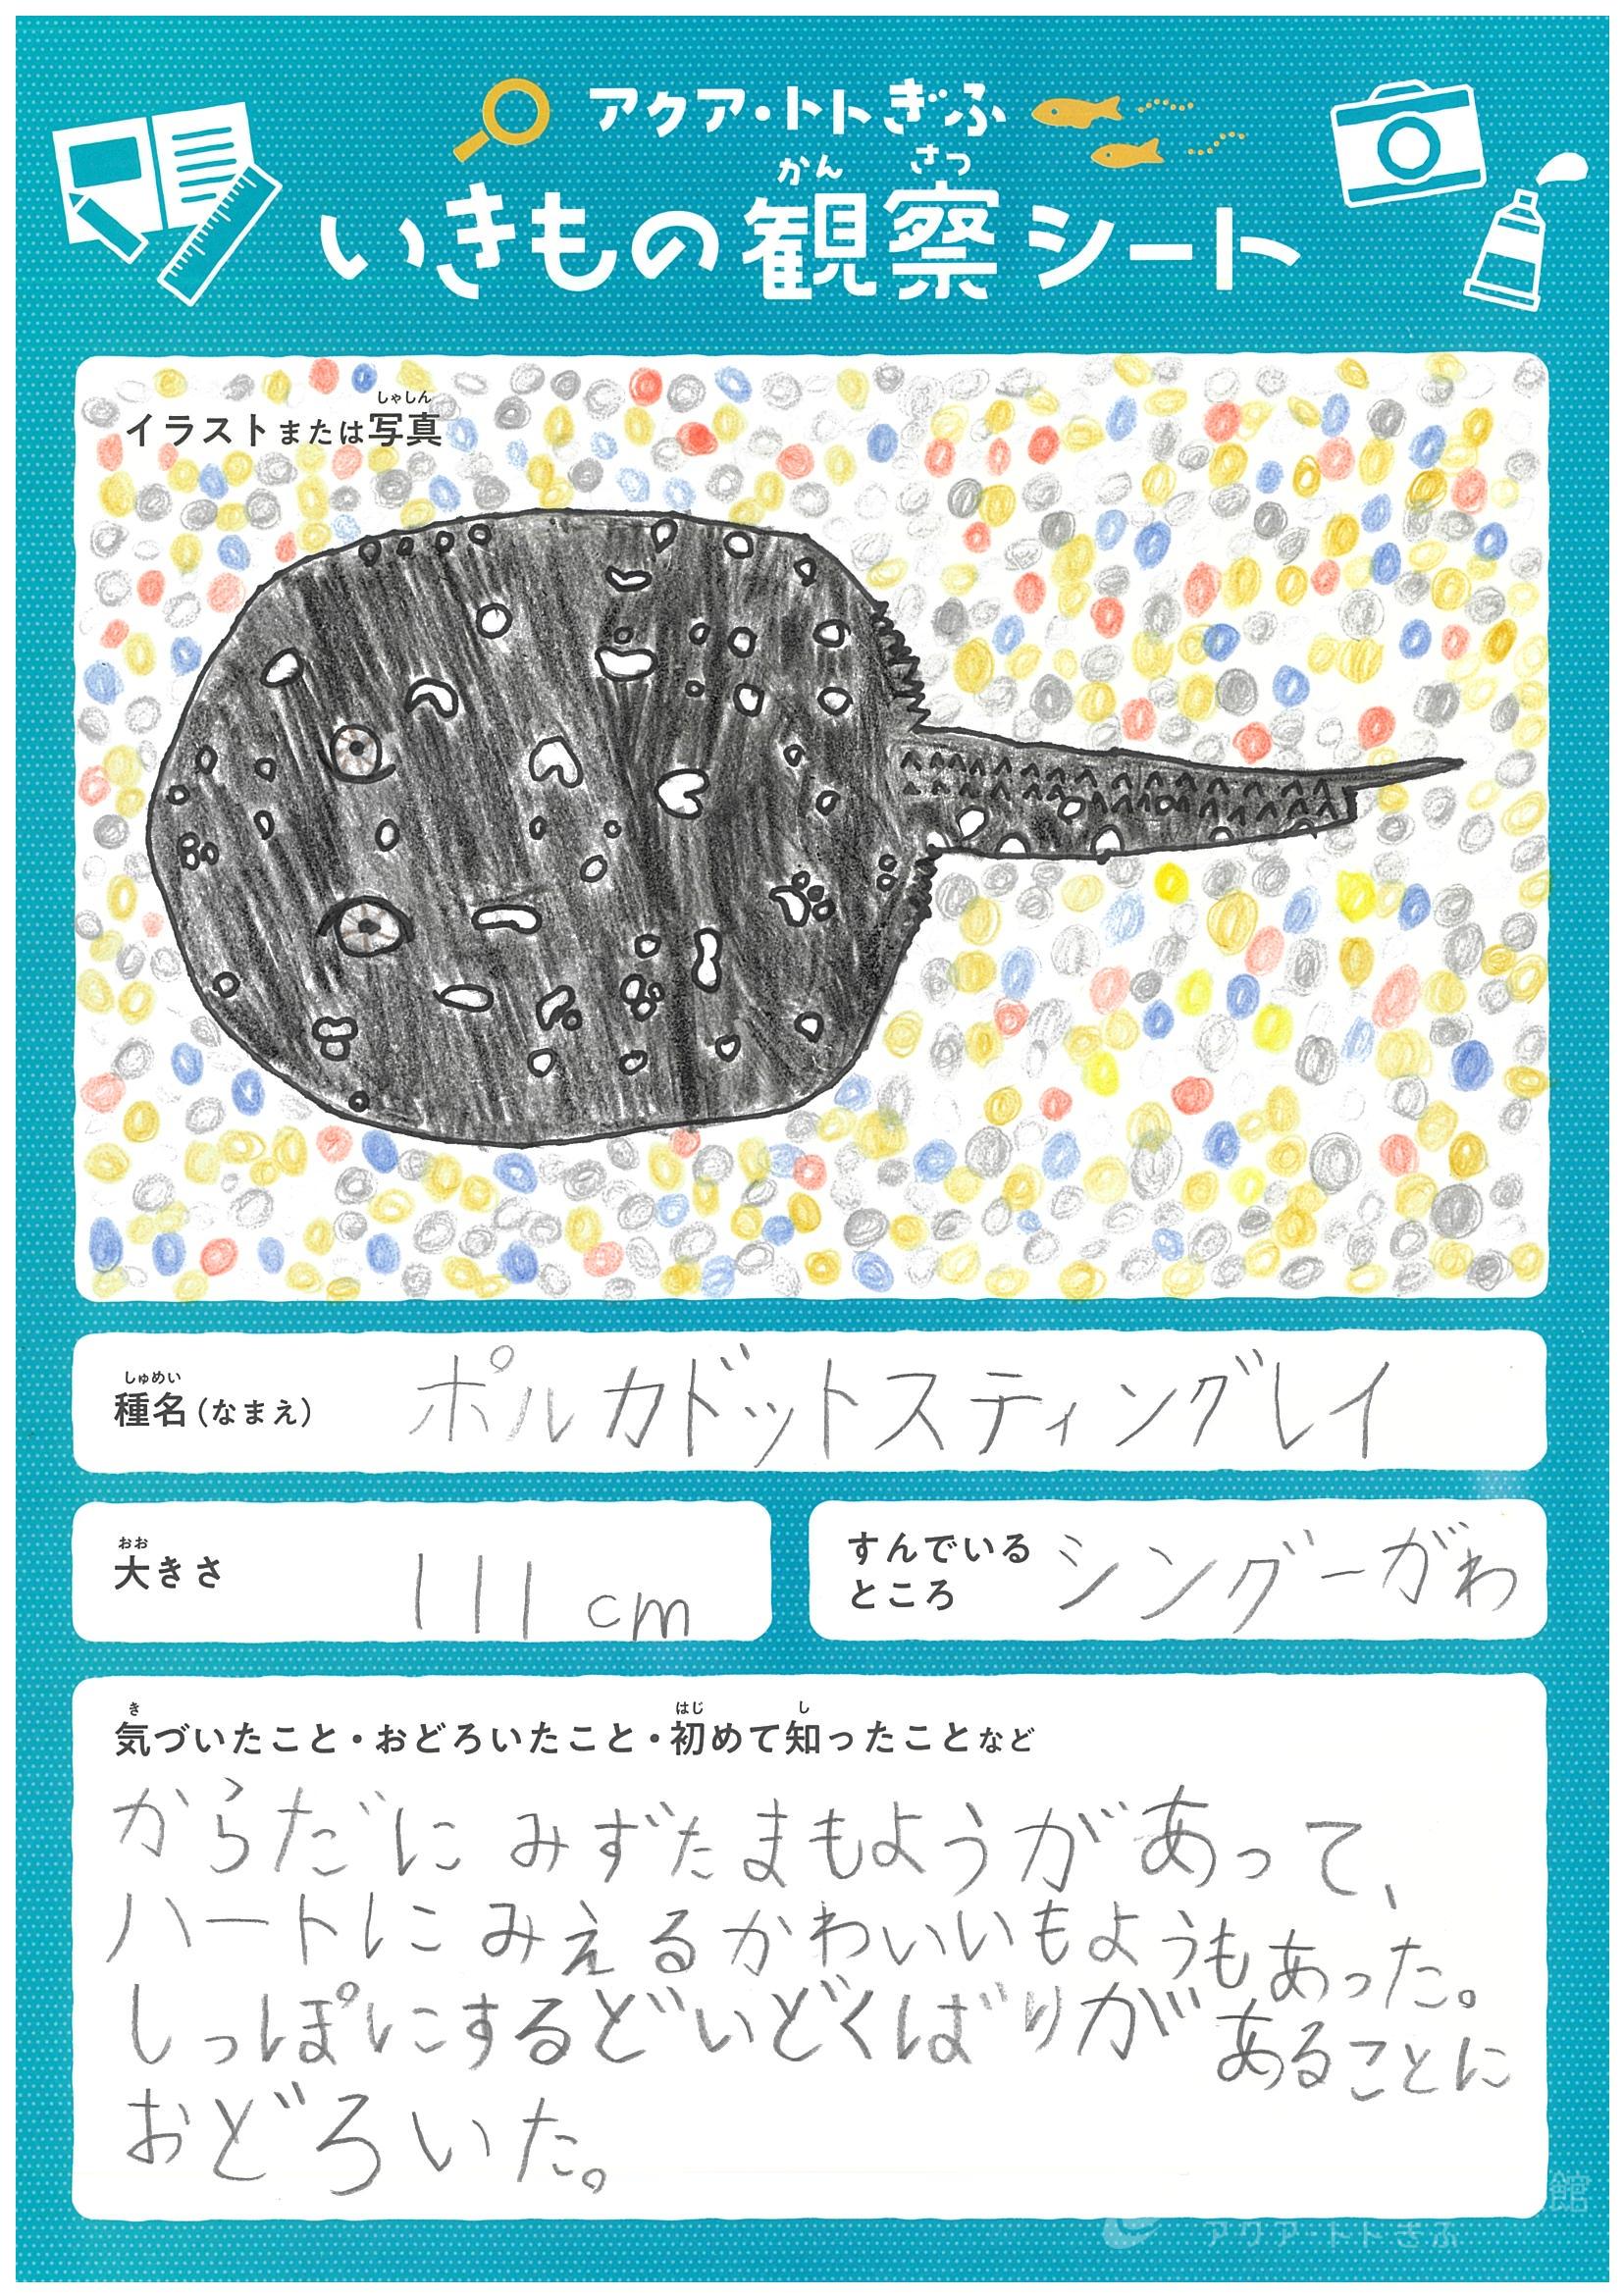 アクア・トトぎふ
かん さつ
いきもの観察シート
しゃしん
イラストまたは写真
しゅめい
種名(なまえ) ポルカドットスティングレイ
おお
大きさ 111cm
すんでいる
ところ シングーがわ
き はじ し
気づいたこと・おどろいたこと・初めて知ったことなど
からだに みずたまもようがあって、
ハートに みえるかわいいもようもあった。
しっぽにするどいどくばりがあることに
おどろいた。
館
アクア・トトぎふ